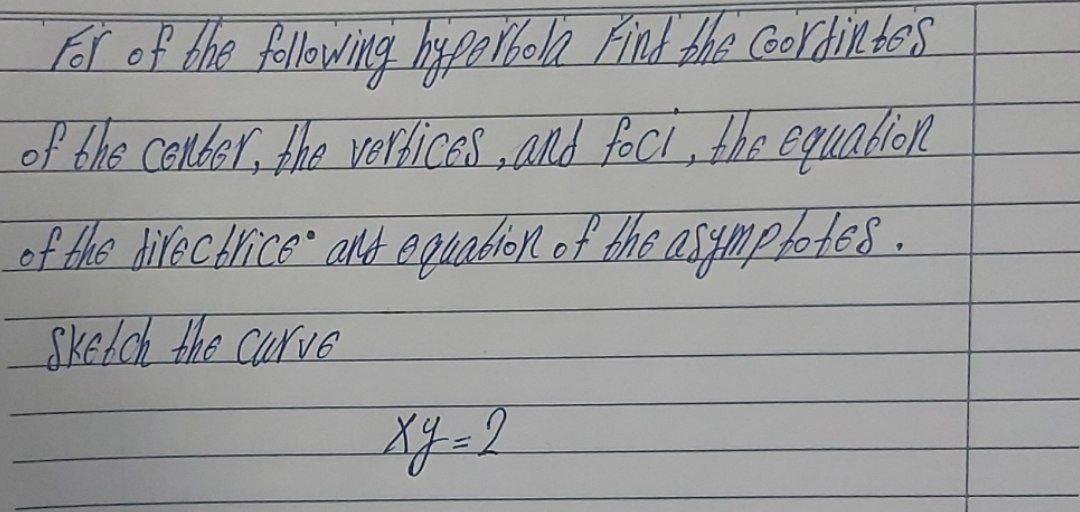 For of the following hyperbola Find the Coordintes
of the center, the vertices, and foci, the equation
of the directrice and equation of the asymptotes.
Sketch the curve
xy=2